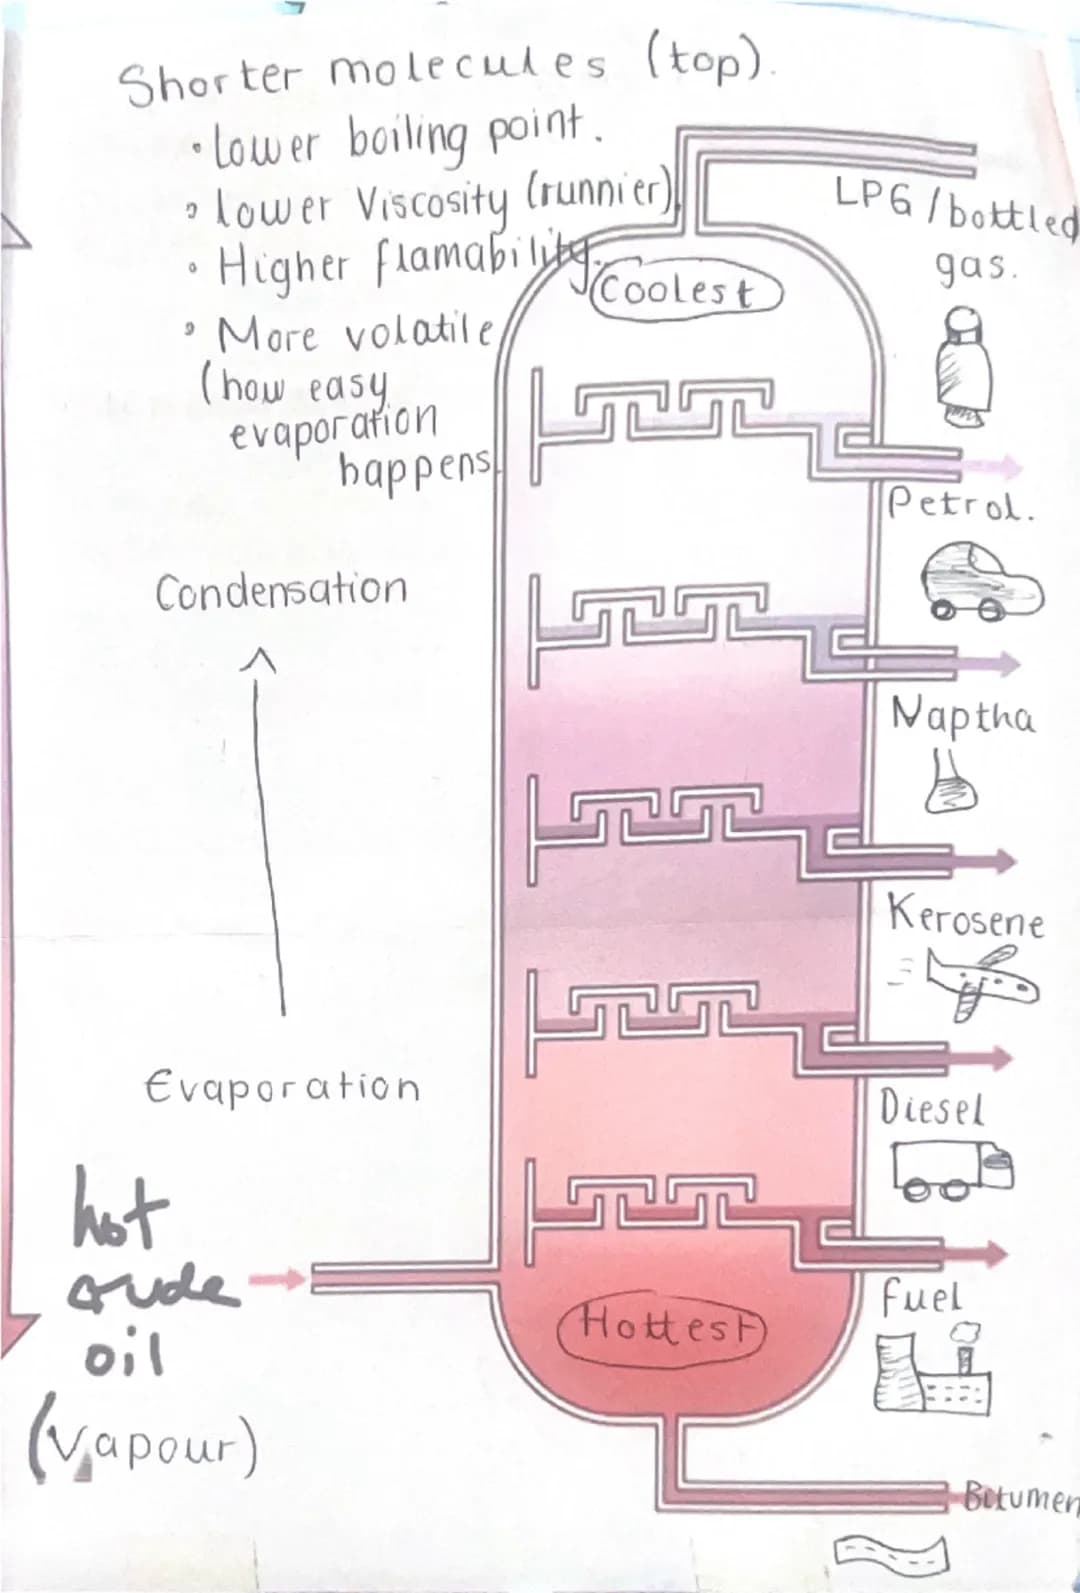 Shorter molecules (top).
• Lower boiling point.
• lower Viscosity (runnier)
• Higher flamability.
• More volatile
(how easy
evaporation
happens
Condensation
Evaporation
hot
crude
oil
(Vapour)
Coolest
Hottest
LPG / bottled
gas.
Petrol.
Naptha
Kerosene
Diesel
fuel
Bitumen